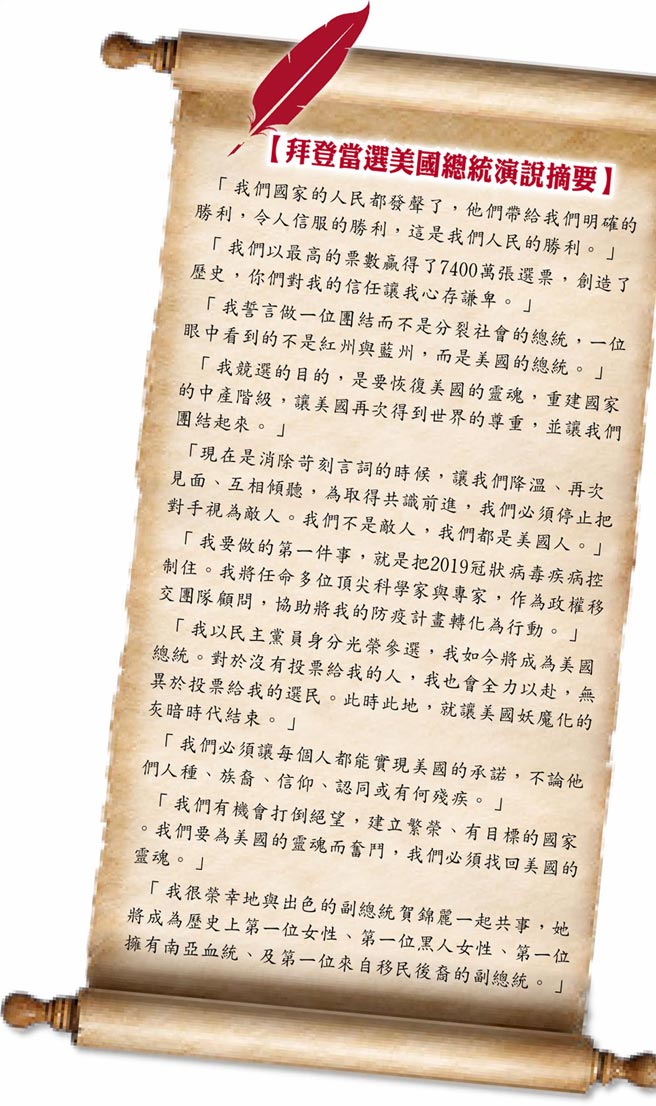 【拜登當選美國總統演說摘要】
「我們國家的人民都發聲了，他們帶給我們明確的
勝利，令人信服的勝利，這是我們人民的勝利。」
「我們以最高的票數贏得了7400萬張選票，創造了
歷史，你們對我的信任讓我心存謙卑。」
「我誓言做一位團結而不是分裂社會的總統，一位
眼中看到的不是紅州與藍州，而是美國的總統。」
「我競選的目的，是要恢復美國的靈魂，重建國家
的中產階級，讓美國再次得到世界的尊重，並讓我們
團結起來。」
「現在是消除苛刻言詞的時候，讓我們降溫、再次
見面、互相傾聽，為取得共識前進，我們必須停止把
對手視為敵人。我們不是敵人，我們都是美國人。」
「我要做的第一件事，就是把2019冠狀病毒疾病控
制住。我將任命多位頂尖科學家與專家，作為政權移
交團隊顧問，協助將我的防疫計畫轉化為行動。」
「我以民主黨員身分光榮參選，我如今將成為美國
總統。對於沒有投票給我的人，我也會全力以赴，無
異於投票給我的選民。此時此地，就讓美國妖魔化的
灰暗時代結束。」
「我們必須讓每個人都能實現美國的承諾，不論他
們人種、族裔、信仰、認同或有何殘疾。」
「我們有機會打倒絕望，建立繁榮、有目標的國家
。我們要為美國的靈魂而奮鬥，我們必須找回美國的
靈魂。」
「我很榮幸地與出色的副總統賀錦麗一起共事，她
將成為歷史上第一位女性、第一位黑人女性、第一位
擁有南亞血統、及第一位來自移民後裔的副總統。」